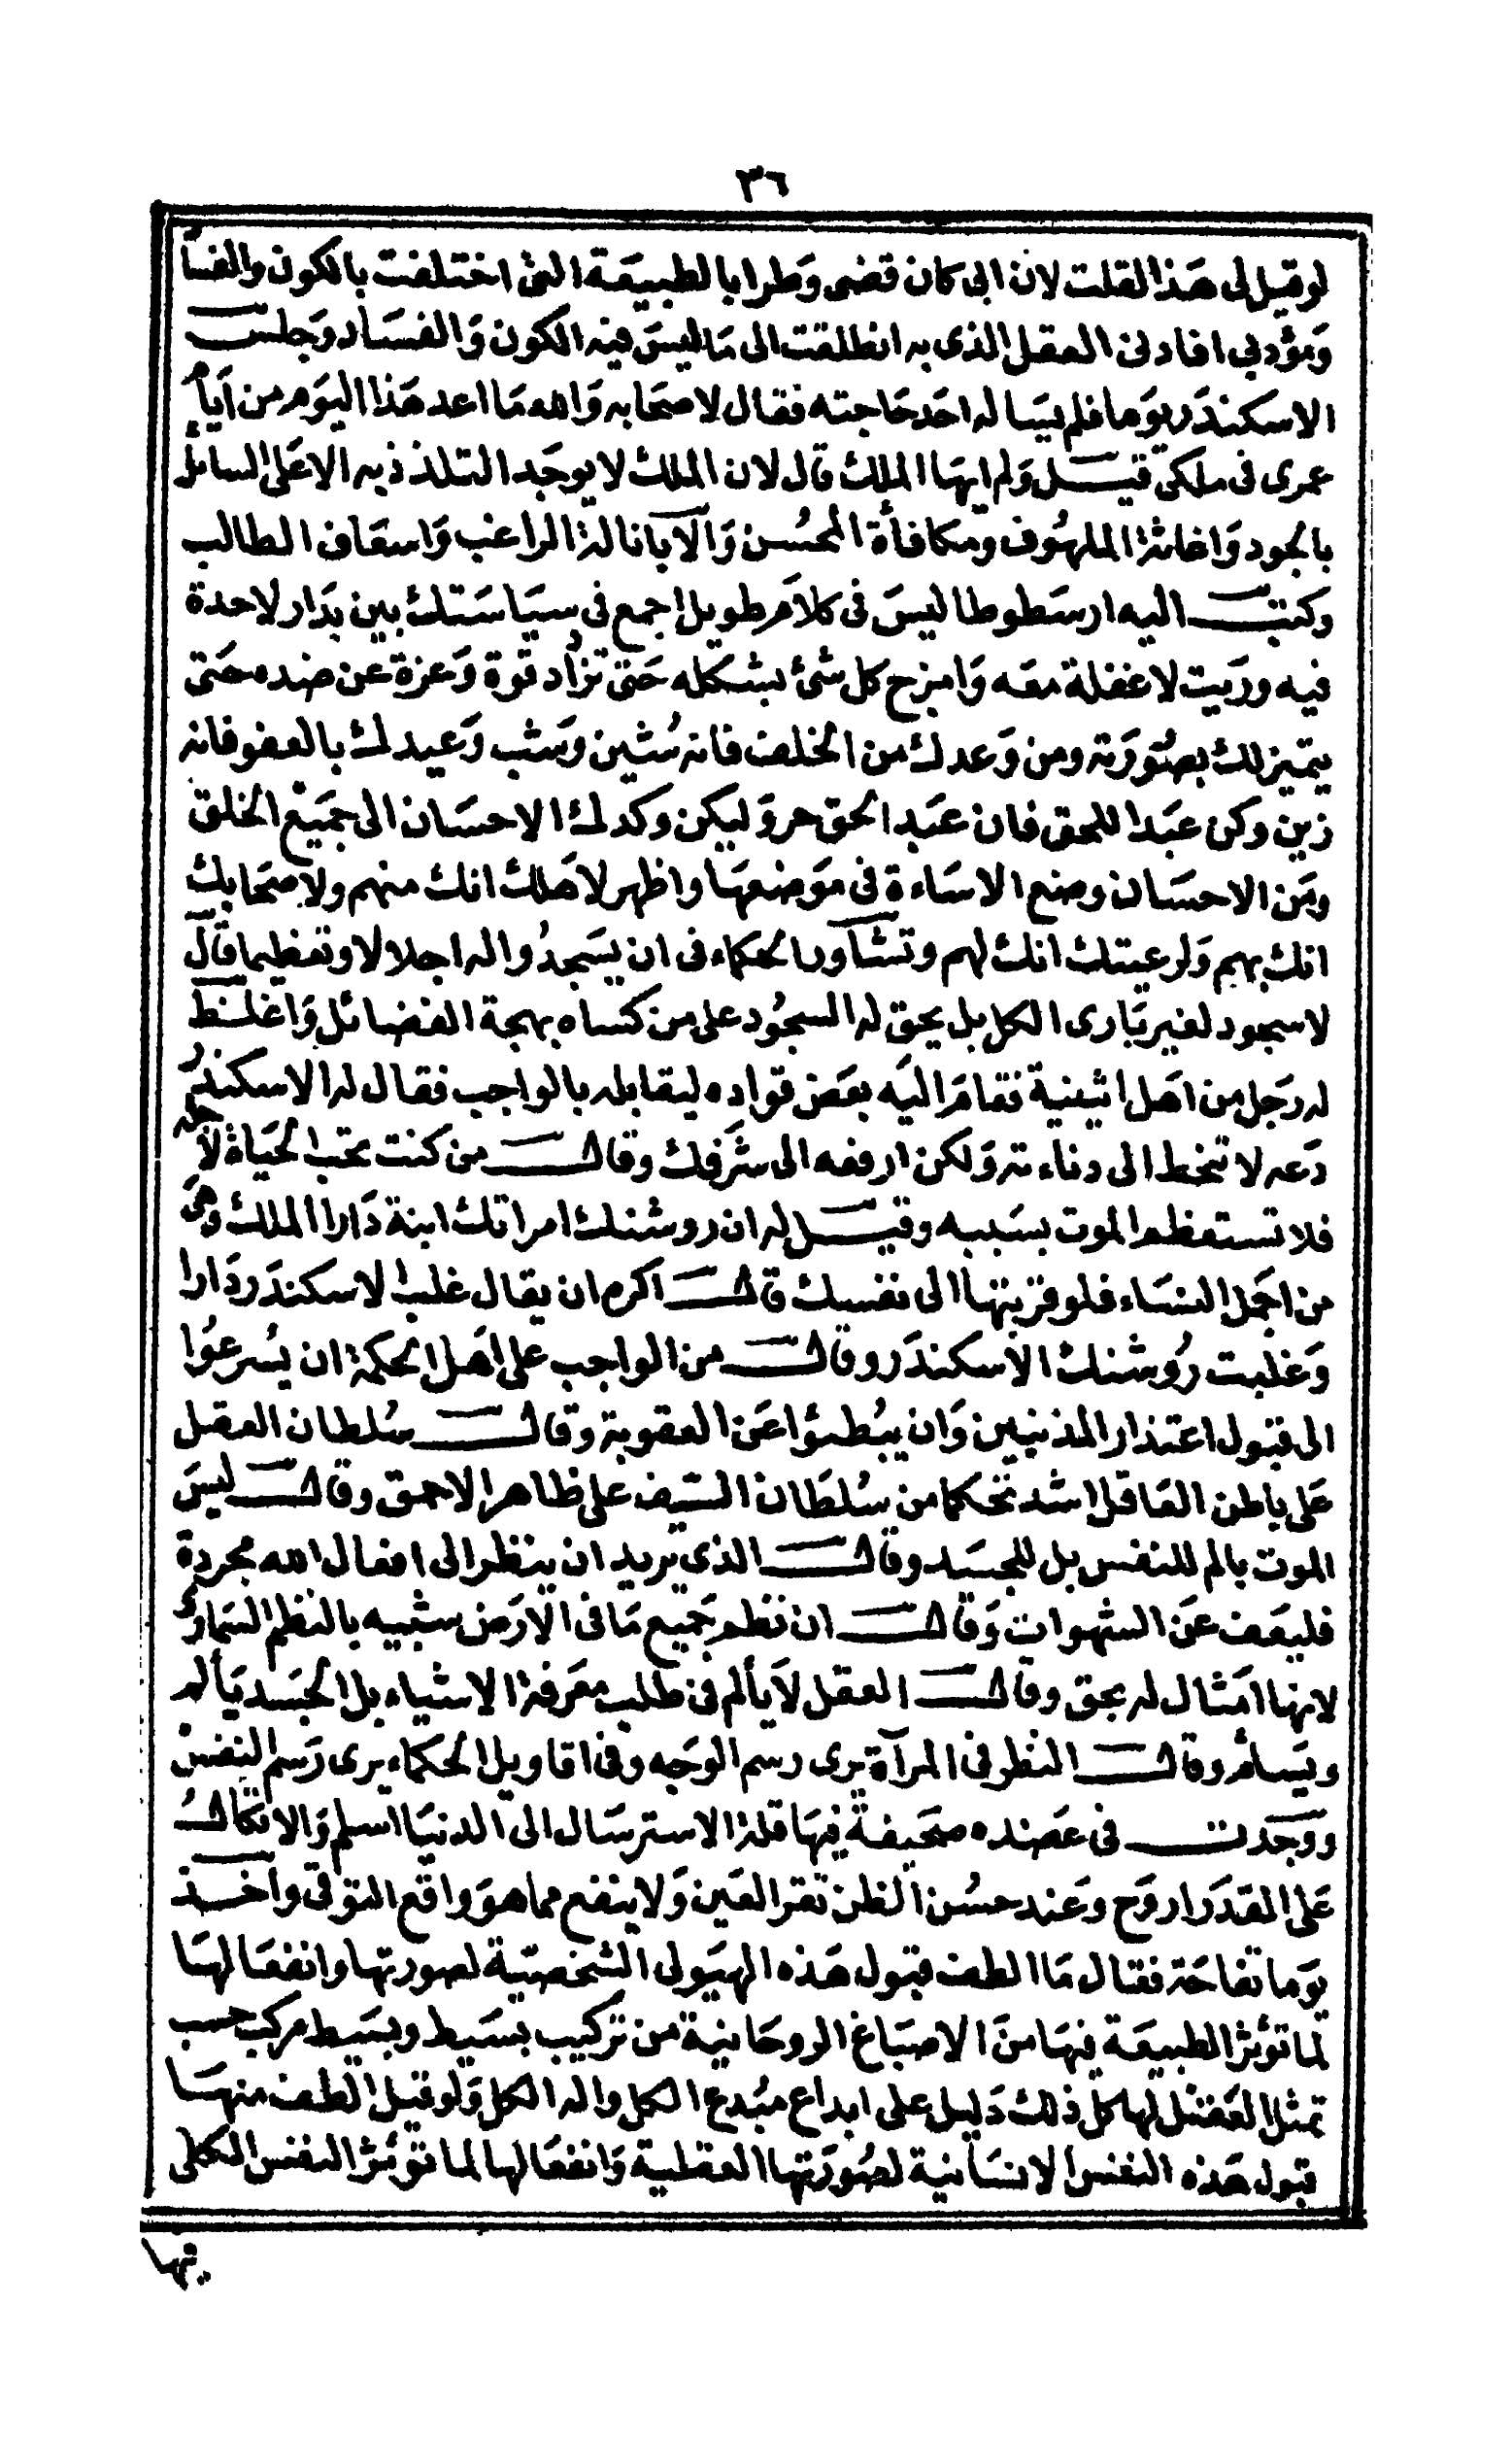 ٣٦
لو قيل لى هذا لقلت لان ابى كان قضى وطرا بالطبيعة التى اختلفت بالكون والفسا
ومؤدبى افادنى العقل الذى به انطلقت الى ما ليس فيه الكون والفساد وجلس
الاسكندر يوما فلم يساله احد حاجته فقال لاصحابه والله ما اعد هذا اليوم من ايام
عمرى فى ملكى قيل ولم ايها الملك قال لان الملك لا يوجد التلذذ به الا على السائل
بالجود واغاثة الملهوف ومكافأة المحسن والا بانالة الراغب واسعاف الطالب
وكتب اليه ارسطوطاليس فى كلام طويل اجمع فى سياستك بين بدار لا حدة
فيه وريث لا غفلة معه وامزج كل شئ بشكله حتى تزاد قوة وعزة عن ضده حتى
يتميز لك بصورته ومن وعدك من الخلف فانه شين وشب وعيدك بالعفو فانه
زين وكن عبدا للحق فان عبد الحق حر وليكن وكدك الاحسان الى جميع الخلق
ومن الاحسان وضع الاساءة فى موضعها واظهر لاهلك انك منهم ولاصحابك
انك بهم ولرعيتك انك لهم وتشاور الحكماء فى ان يسجدوا له اجلالا وتعظيما قال
لا سجود لغير بارى الكل بل يحق له السجود على من كساه بهجة الفضائل واغلظ
له رجل من اهل اثينية فقام اليه بعض قواده ليقابله بالواجب فقال له الاسكندر
دعه لا تنحط الى دناءته ولكن ارفعه الى شرفك وقال من كنت تحب الحياة لاجله
فلا تستعظم الموت بسببه وقيل له ان روشنك امراتك ابنة دارا الملك وهى
من اجمل النساء فلو قربتها الى نفسك قال اكره ان يقال غلب الاسكندر دارا
وغلبت روشنك الاسكندر وقال من الواجب على اهل الحكمة ان يسرعوا
الى قبول اعتذار المذنبين وان يبطئوا عن العقوبة وقال سلطان العقل
على باطن العاقل اشد تحكما من سلطان السيف على ظاهر الاحمق وقال ليس
الموت بالم للنفس بل للجسد وقال الذى يريد ان ينظر الى افعال الله مجردة
فليعف عن الشهوات وقال ان نظم جميع ما فى الارض شبيه بالنظم السماوى
لانها امثال له بحق وقال العقل لا يألم فى طلب معرفة الاشياء بل الجسد يألم
ويسأم وقال النظر فى المرآة يرى رسم الوجه وفى اقاويل الحكماء يرى رسم النفس
ووجدت فى عضده صحيفة فيها قلة الاسترسال الى الدنيا اسلم والاتكال
على القدر اروح وعند حسن الظن تقر العين ولا ينفع مما هو واقع التوقى وأخذ
يوما تفاحة فقال ما الطف قبول هذه الهيولى الشخصية لصورتها وانفعالها
لما تؤثر الطبيعة فيها من الاصباغ الروحانية من تركيب بسيط وبسيط مركب حسب
تمثل العقل لها كل ذلك دليل على ابداع مبدع الكل واله الكل ولو قيل الطف منها
قبول هذه النفس الانسانية لصورتها العقلية وانفعالها لما تؤثر النفس الكلى
فيها